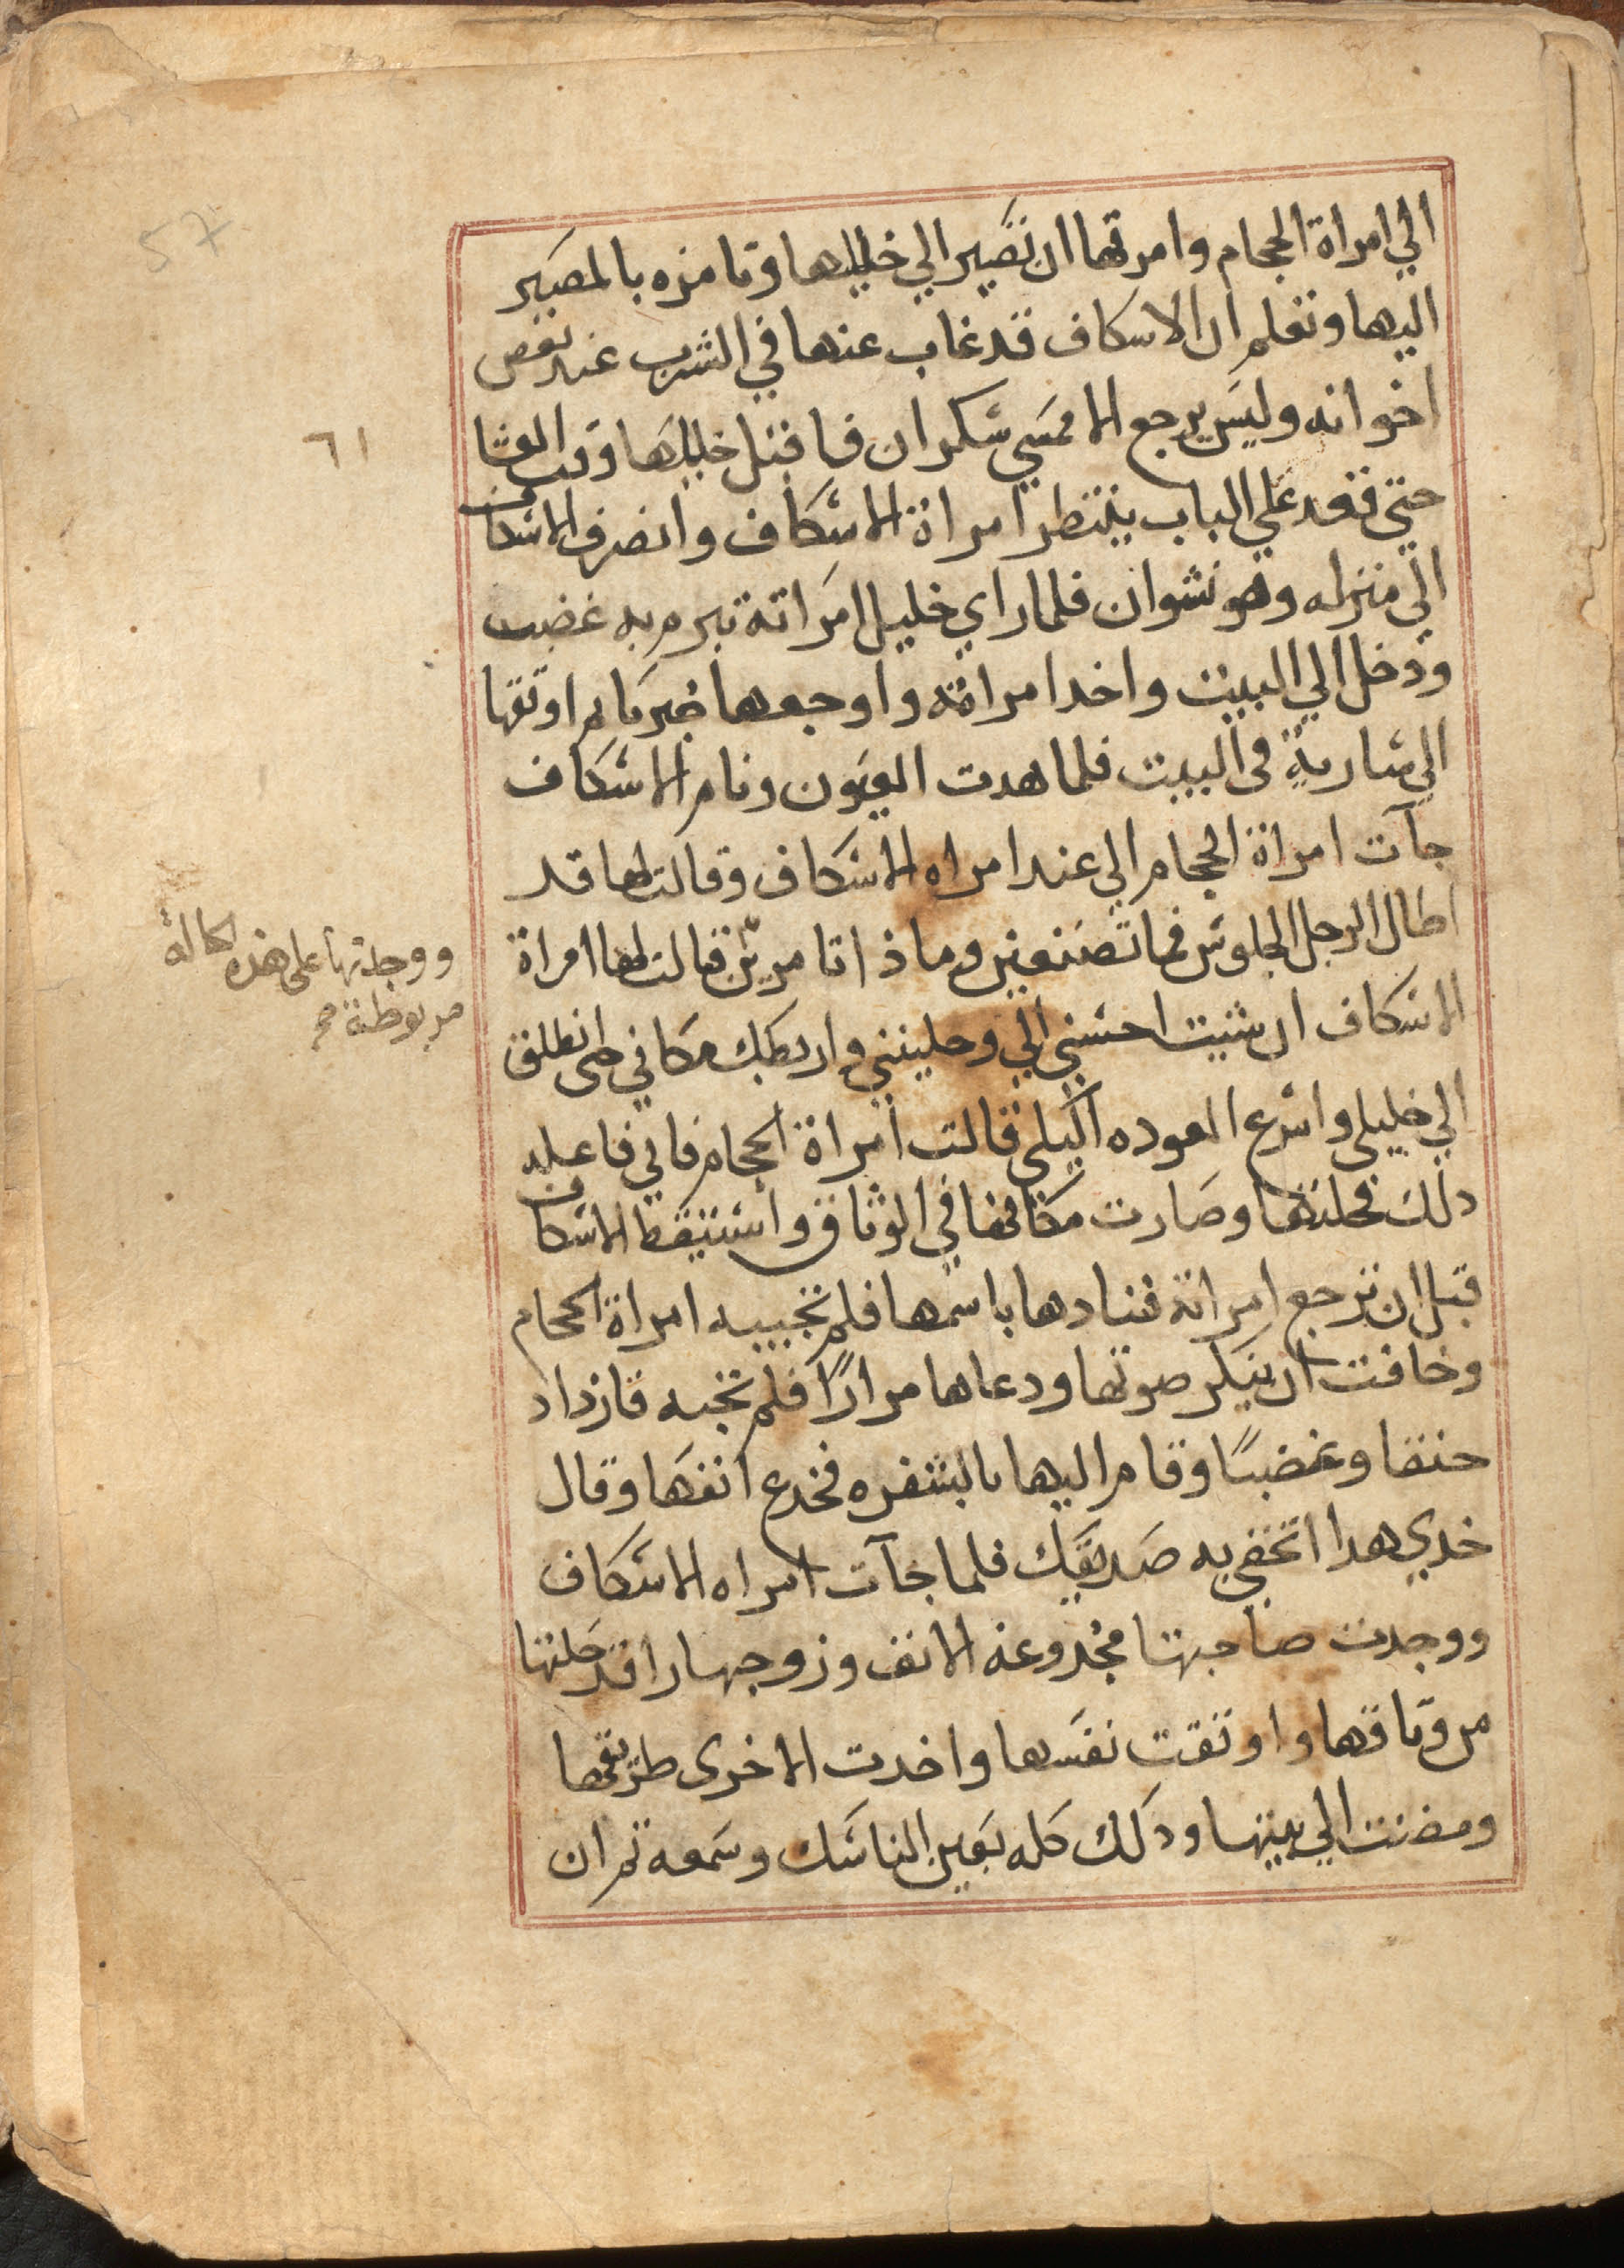 الي امراة الحجام وامرتها ان تصير الي خليلها وتامره بالمصير
اليها وتعلم ان الاسكاف قد غاب عنها في الشرب عند بعض
اخوانه وليس يرجع الا ممسي سكران فاقبل خليلها وقت العشا
حتي قعد علي الباب ينتظر امراة الاسكاف وانصرف الاسكاف
الي منزله وهو نشوان فلما راي خليل امراته تبرم به غضب
ودخل الي البيت واخد امراته واوجعها ضربا ثم اوثقها
الي سارية في البيت فلما هدت العيون ونام الاسكاف
جآت امراة الحجام الي عند امراه الاسكاف وقالت لها قد
اطال الرجل الجلوس فما تصنعين وماذا تامرين قالت لها امراة
الاسكاف ان شيت احسني الي وحليني واربطك مكاني حتى انطلق
الي خليلي واسرع العوده اليكي قالت امراة الحجام فاني فاعله
دلك فحلتها وصارت مكانها في الوثاق واستيقظ الاسكاف
قبل ان ترجع امراته فنادها باسمها فلم تجيبه امراة الحجام
وخافت ان ينكر صوتها ودعاها مرارًا فلم تجبه فازداد
حنقا وغضبًا وقام اليها بالشفره فجدع انفها وقال
خدي هدا اتحفي به صديقك فلما جآت امراه الاسكاف
ووجدت صاحبتها مجدوعة الانف وزوجها راقد حلتها
من وثاقها واوثقت نفسها واخدت الاخرى طريقها
ومضت الي بيتها ودلك كله بعين الناسك وسمعه ثم ان
57
٦١
ووجدتها على هذه الحالة
مربوطة صح